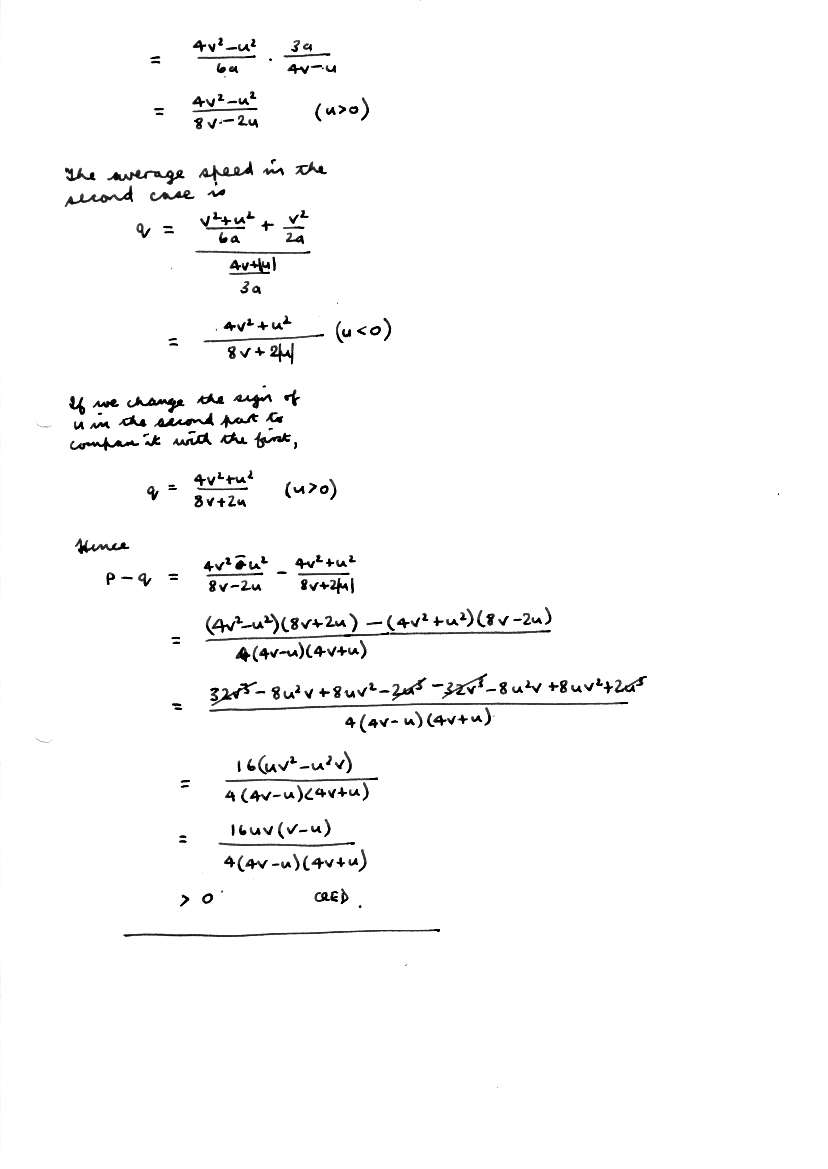 = (4v²-u²)/(6a) · (3a)/(4v-u)
= (4v²-u²)/(8v-2u) (u>0)
The average speed in the
second case is
q = ((v²+u²)/(6a) + (v²)/(2a))/((4v+|u|)/(3a))
= (4v²+u²)/(8v+2|u|) (u<0)
If we change the sign of
u in the second part to
compare it with the first,
q = (4v²+u²)/(8v+2u) (u>0)
Hence
p-q = (4v²-u²)/(8v-2u) - (4v²+u²)/(8v+2|u|)
= ((4v²-u²)(8v+2u)-(4v²+u²)(8v-2u))/(4(4v-u)(4v+u))
= (32v³-8u²v+8uv²-2u³-32v³-8u²v+8uv²+2u³)/(4(4v-u)(4v+u))
= (16(uv²-u²v))/(4(4v-u)(4v+u))
= (16uv(v-u))/(4(4v-u)(4v+u))
> 0 QED.